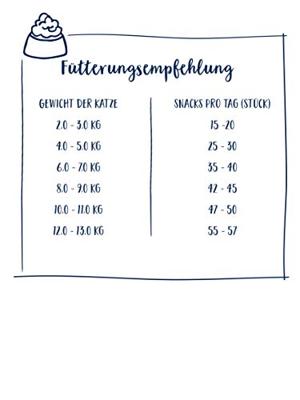 Fütterungsempfehlung
GEWICHT DER KATZE SNACKS PRO TAG (STÜCK)
2.0 - 3.0 KG 15 -20
4.0 - 5.0 KG 25 - 30
6.0 - 7.0 KG 35 - 40
8.0 - 9.0 KG 42 - 45
10.0 - 11.0 KG 47 - 50
12.0 - 13.0 KG 55 - 57